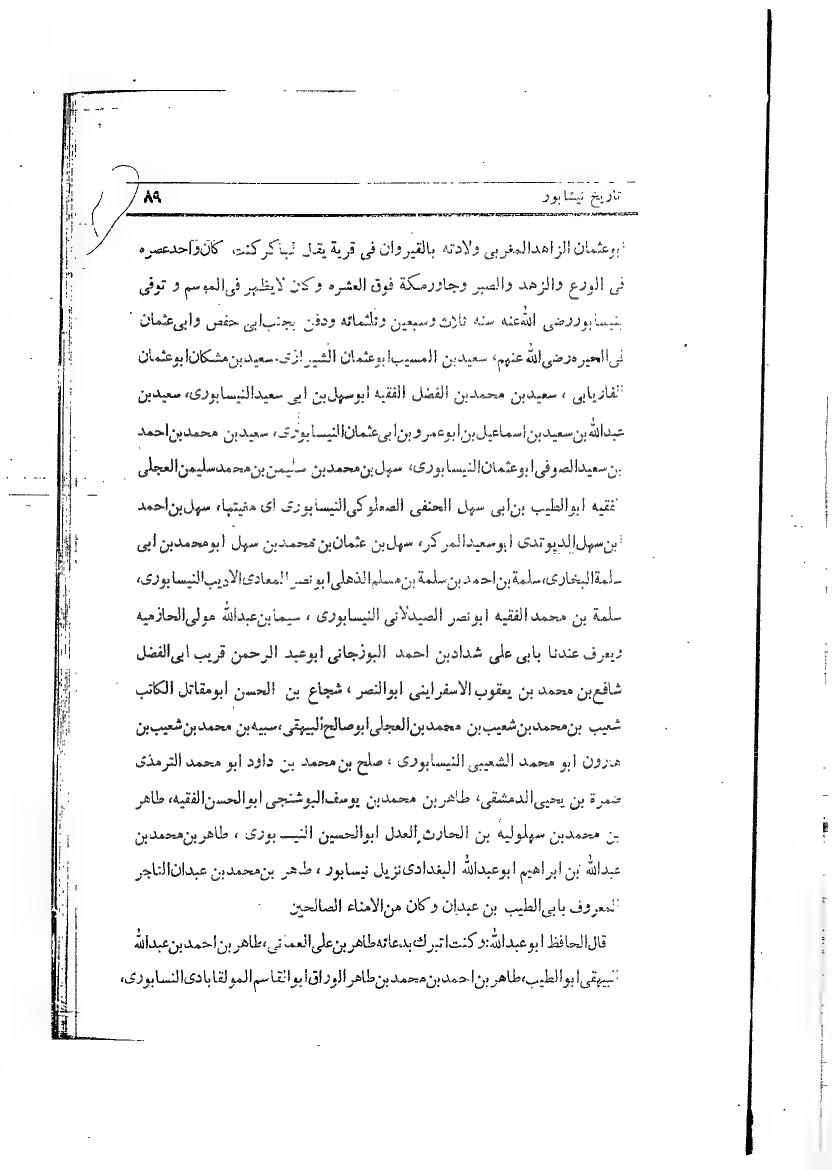 تاریخ نیشابور ۸۹
ابوعثمان الزاهدالمغربی ولادته بالقیروان فی قریة یقال لها کرکنت کان واحدعصره
فی الورع والزهد والصبر وجاورمکة فوق العشره وکان لایظهر فی الموسم و توفی
بنیسابوررضی الله عنه سنه ثلاث وسبعین وثلثمائه ودفن بجنب ابی حفص وابی عثمان
فی الحیره رضی الله عنهم، سعیدبن المسیب ابوعثمان الشیرازی، سعیدبن مشکان ابوعثمان
الفاریابی ، سعیدبن محمدبن الفضل الفقیه ابوسهل بن ابی سعیدالنیسابوری، سعیدبن
عبدالله بن سعیدبن اسماعیل بن ابوعمروبن ابی عثمان النیسابوری، سعیدبن محمدبن احمد
بن سعیدالصوفی ابوعثمان النیسابوری، سهل بن محمدبن سلیمن بن محمدسلیمن العجلی
الفقیه ابوالطیب بن ابی سهل الحنفی الصعلوکی النیسابوری ای مفیتها، سهل بن احمد
ابن سهل الدیوندی ابوسعیدالمرکر، سهل بن عثمان بن محمدبن سهل ابومحمدبن ابی
سلمة البخاری، سلمة بن احمدبن سلمة بن مسلم الذهلی ابونصر المعادی الادیب النیسابوری،
سلمة بن محمد الفقیه ابونصر الصیدلانی النیسابوری ، سیمابن عبدالله مولی الحازمیه
ویعرف عندنا بابی علی شدادبن احمد البوزجانی ابوعبد الرحمن قریب ابی الفضل
شافع بن محمد بن یعقوب الاسفراینی ابوالنصر ، شجاع بن الحسن ابومقاتل الکاتب
شعیب بن محمدبن شعیب بن محمدبن العجلی ابوصالح البیهقی، سبیه بن محمدبن شعیب بن
هارون ابو محمد الشعیبی النیسابوری ، صلح بن محمد بن داود ابو محمد الترمذی
ضمرة بن یحیی الدمشقی، طاهربن محمدبن یوسف البوشنجی ابوالحسن الفقیه، طاهر
بن محمدبن سهلولیه بن الحارث العدل ابوالحسین النیسابوری ، طاهربن محمدبن
عبدالله بن ابراهیم ابوعبدالله البغدادی نزیل نیسابور ، طاهر بن محمدبن عبدان التاجر
المعروف بابی الطیب بن عبدان وکان من الامناء الصالحین
قال الحافظ ابوعبدالله: وکنت اتبرک بدعائه طاهربن علی العمانی، طاهربن احمدبن عبدالله
البیهقی ابوالطیب، طاهربن احمدبن محمدبن طاهر الوراق ابوالقاسم المولقابادی النسابوری،